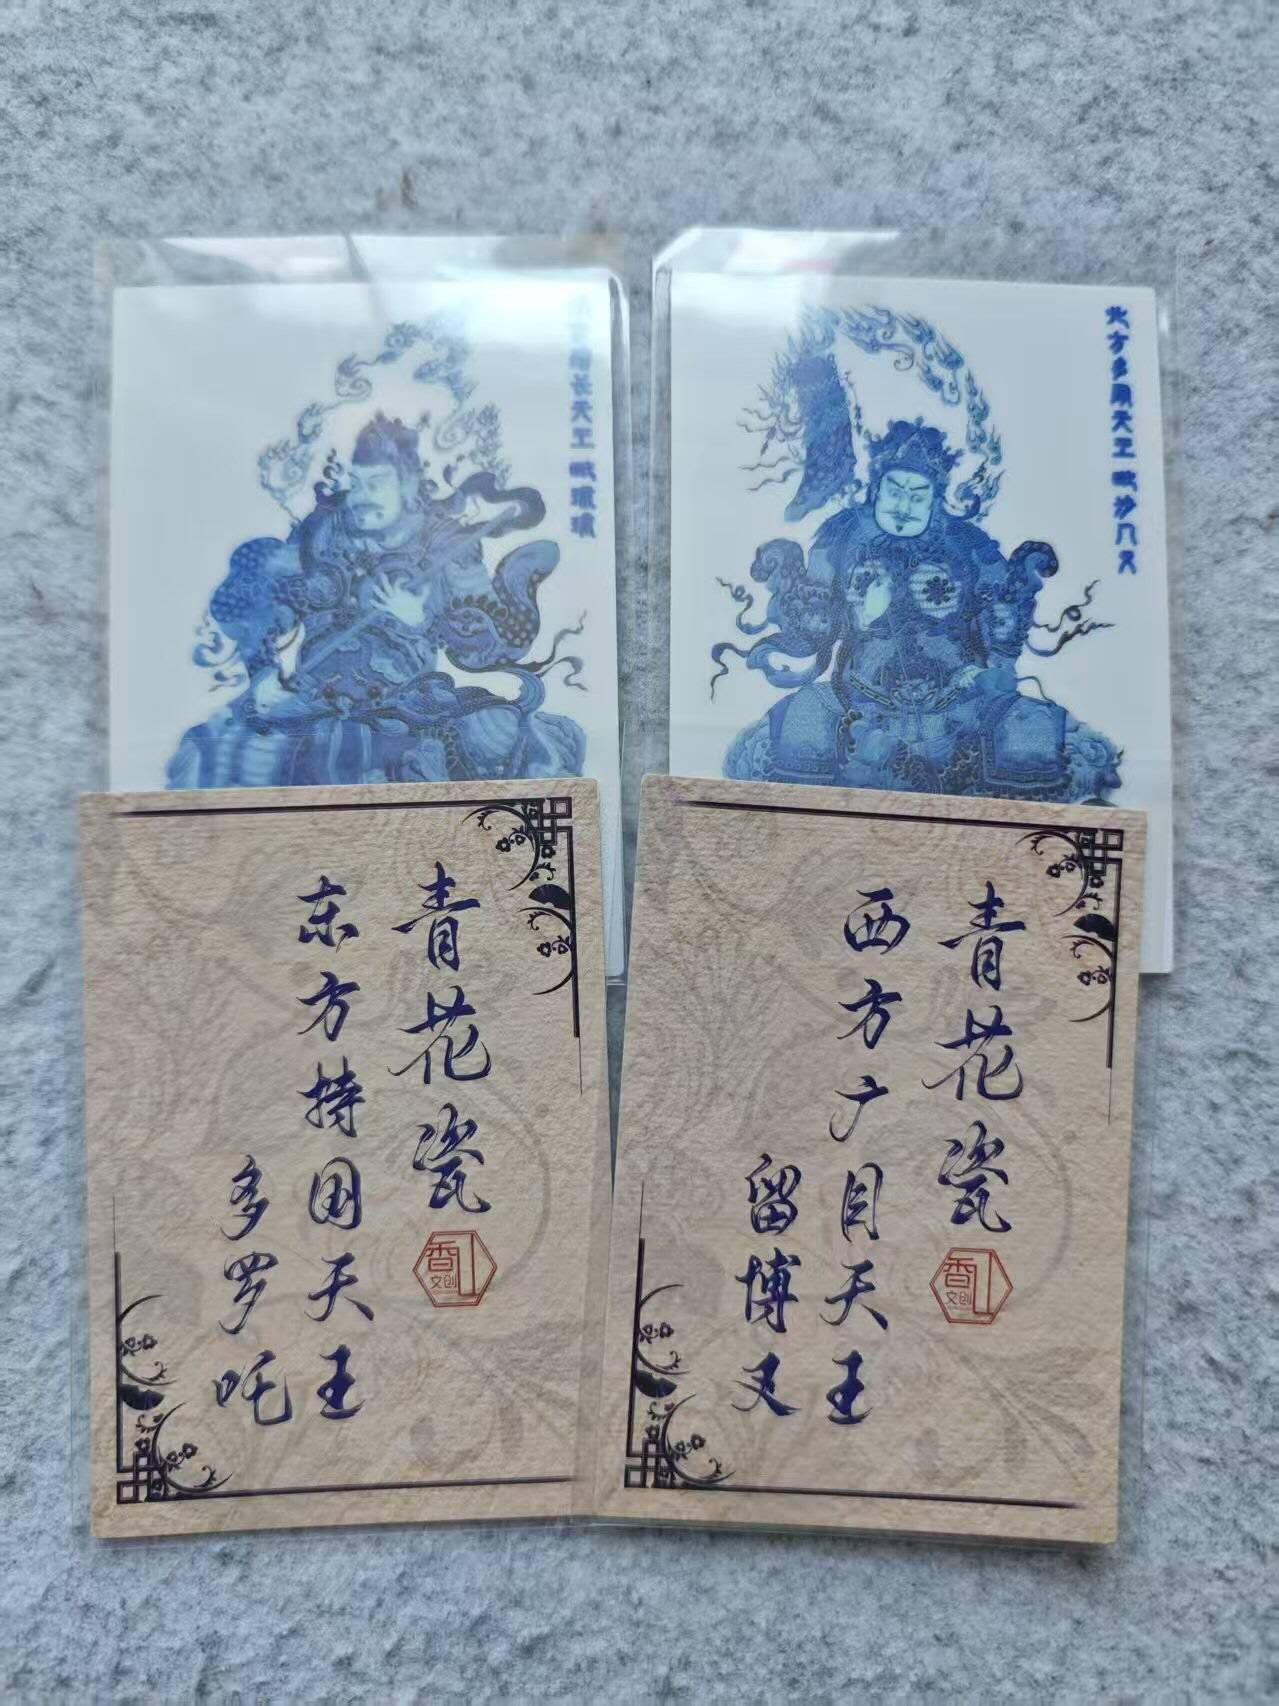 增长天王
北方多闻天王 毗沙门天
青花瓷
东方持国天王
多罗吒
香
文创
青花瓷
西方广目天王
留博叉
香
文创